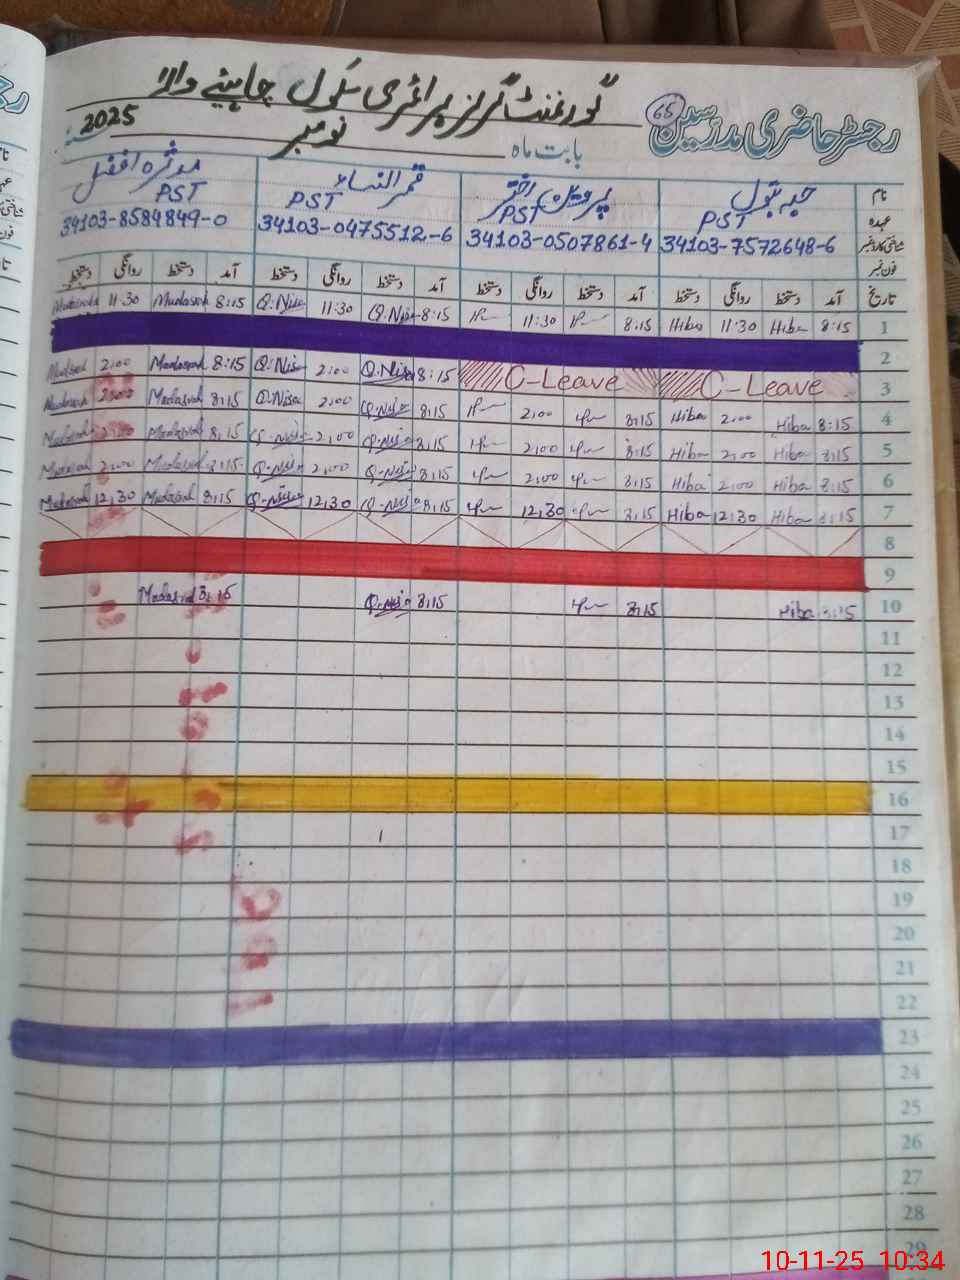 رجسٹر حاضری مدرسین
65
گورنمنٹ گرلز پرائمری سکول چاہنیے والا
بابت ماہ نومبر 2025
نام حبہ بتول پروین اختر قمر النساء
عہدہ PST PST PST PST
شناختی کارڈ نمبر 34103-7572648-6 34103-0507861-4 34103-0475512-6 34103-8584849-0
فون نمبر
تاریخ آمد دستخط روانگی دستخط آمد دستخط روانگی دستخط آمد دستخط روانگی دستخط آمد دستخط روانگی دستخط
1 8:15 Hiba 11:30 Hiba 8:15 11:30 8:15 Q.Nisa 11:30 Q.Nisa 8:15 Madasrah 11:30 Madasrah
2
3 C-Leave C-Leave 8:15 Q.Nisa 2:00 Q.Nisa 8:15 Madasrah 2:00 Madasrah
4 8:15 Hiba 2:00 Hiba 8:15 2:00 8:15 Q.Nisa 2:00 Q.Nisa 8:15 Madasrah 2:00 Madasrah
5 8:15 Hiba 2:00 Hiba 8:15 2:00 8:15 Q.Nisa 2:00 Q.Nisa 8:15 Madasrah 2:00 Madasrah
6 8:15 Hiba 2:00 Hiba 8:15 2:00 8:15 Q.Nisa 2:00 Q.Nisa 8:15 Madasrah 2:00 Madasrah
7 8:15 Hiba 12:30 Hiba 8:15 12:30 8:15 Q.Nisa 12:30 Q.Nisa 8:15 Madasrah 12:30 Madasrah
8
9
10 8:15 Hiba 8:15 8:15 Q.Nisa 8:15 Madasrah
11
12
13
14
15
16
17
18
19
20
21
22
23
24
25
26
27
28
29
10-11-25 10:34